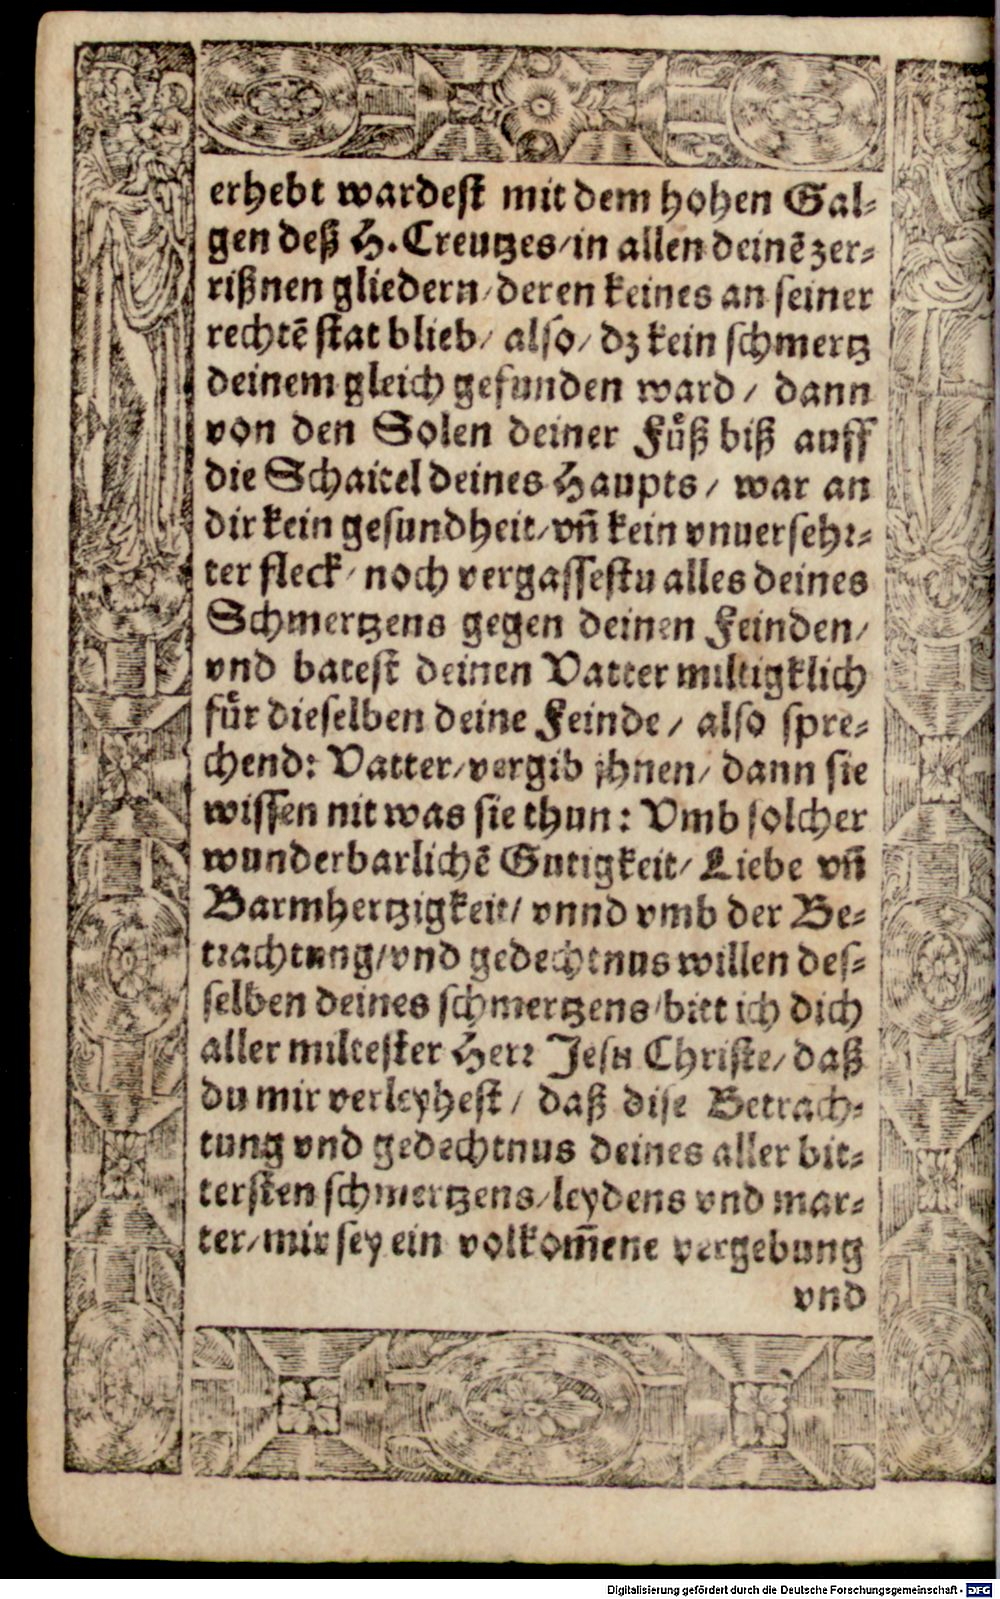 erhebt wardest mit dem hohen Gal⸗
gen deß H. Creutzes/in allen deinē zer⸗
rißnen gliedern/deren keines an seiner
rechtē stat blieb/ also/ dz kein schmertz
deinem gleich gefunden ward/ dann
von den Solen deiner Fuͤß biß auff
die Schaitel deines Haupts/ war an
dir kein gesundheit/vñ kein vnuersehr⸗
ter fleck/noch vergassestu alles deines
Schmertzens gegen deinen Feinden/
vnd batest deinen Vatter miltigklich
fuͤr dieselben deine Feinde/ also spre⸗
chend: Vatter/vergib jhnen/ dann sie
wissen nit was sie thun: Vmb solcher
wunderbarlichē Gutigkeit/ Liebe vñ
Barmhertzigkeit/ vnnd vmb der Be⸗
trachtung/vnd gedechtnus willen des⸗
selben deines schmertzens/bitt ich dich
aller miltester Herr Jesu Christe/ daß
du mir verleyhest/ daß dise Betrach⸗
tung vnd gedechtnus deines aller bit⸗
tersten schmertzens/leydens vnd mar⸗
ter/mir sey ein volkom̄ene vergebung
vnd
Digitalisierung gefördert durch die Deutsche Forschungsgemeinschaft - DFG